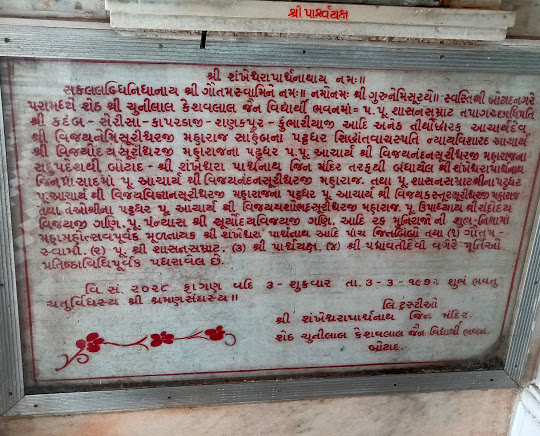 શ્રી પાર્શ્વયક્ષ
શ્રી શંખેશ્વરાપાર્શ્વનાથાય નમઃ॥
સકલલબ્ધિનિધાનાય શ્રી ગૌતમસ્વામિને નમઃ॥ નમોનમઃ શ્રી ગુરુનેમિસૂરયે॥ સ્વસ્તિશ્રી બોટાદનગરે
પરામધ્યે શેઠ શ્રી ચુનીલાલ કેશવલાલ જૈન વિદ્યાર્થી ભવનમાં = પ. પૂ. શાસનસમ્રાટ તપાગચ્છાધિપતિ
શ્રી કદંબ - સેરીસા - કાપરડાજી - રાણકપુર - કુંભારીયાજી આદિ અનેક તીર્થોધ્ધારક આચાર્યદેવ
શ્રી વિજયનેમિસૂરીશ્વરજી મહારાજ સાહેબના પટ્ટધર સિધ્ધાંતવાચસ્પતિ ન્યાયવિશારદ આચાર્ય
શ્રી વિજયોદયસૂરીશ્વરજી મહારાજના પટ્ટધર પ. પૂ. આચાર્ય શ્રી વિજયનંદનસૂરીશ્વરજી મહારાજના
સદુપદેશથી બોટાદ - શ્રી શંખેશ્વરા પાર્શ્વનાથ જિન મંદિર તરફથી બંધાયેલ શ્રી શંખેશ્વરાપાર્શ્વનાથ
જિનપ્રાસાદમાં પૂ. આચાર્ય શ્રી વિજયનંદનસૂરીશ્વરજી મહારાજ. તથા પૂ. શાસનસમ્રાટશ્રીનાપટ્ટધર
પૂ.આચાર્ય શ્રી વિજયવિજ્ઞાનસૂરીશ્વરજી મહારાજના પટ્ટધર પૂ. આચાર્ય શ્રી વિજયકસ્તુરસૂરીશ્વરજી મહારાજ
તથા તેઓશ્રીના પટ્ટધર પૂ. આચાર્ય શ્રી વિજયયશોભદ્રસૂરીશ્વરજી મહારાજ. પૂ. ઉપાધ્યાય શ્રી ચંદ્રોદય
વિજયજી ગણિ. પૂ. પંન્યાસ શ્રી સૂર્યોદયવિજયજી ગણિ. આદિ ૨૬ મુનિરાજોની શુભ-નિશ્રામાં
મહામહોત્સવપૂર્વક મૂળનાયક શ્રી શંખેશ્વરા પાર્શ્વનાથ આદિ પાંચ જિનબિંબો તથા (૧) ગૌતમ-
સ્વામી. (૨) પૂ. શ્રી શાસનસમ્રાટ. (૩) શ્રી પાર્શ્વયક્ષ. (૪) શ્રી પદ્માવતીદેવી વગેરે મૂર્તિઓ
પ્રતિષ્ઠાવિધિપૂર્વક પધરાવેલ છે.
વિ. સં. ૨૦૨૮ ફાગણ વદિ ૩ - શુક્રવાર તા. ૩-૩-૧૯૭૨ શુભં ભવતુ
ચતુર્વિધસ્ય શ્રી શ્રમણસંઘસ્ય॥
લિ. ટ્રસ્ટીઓ
શ્રી શંખેશ્વરાપાર્શ્વનાથ જિન મંદિર.
શેઠ ચુનીલાલ કેશવલાલ જૈન વિદ્યાર્થી ભવન.
બોટાદ.